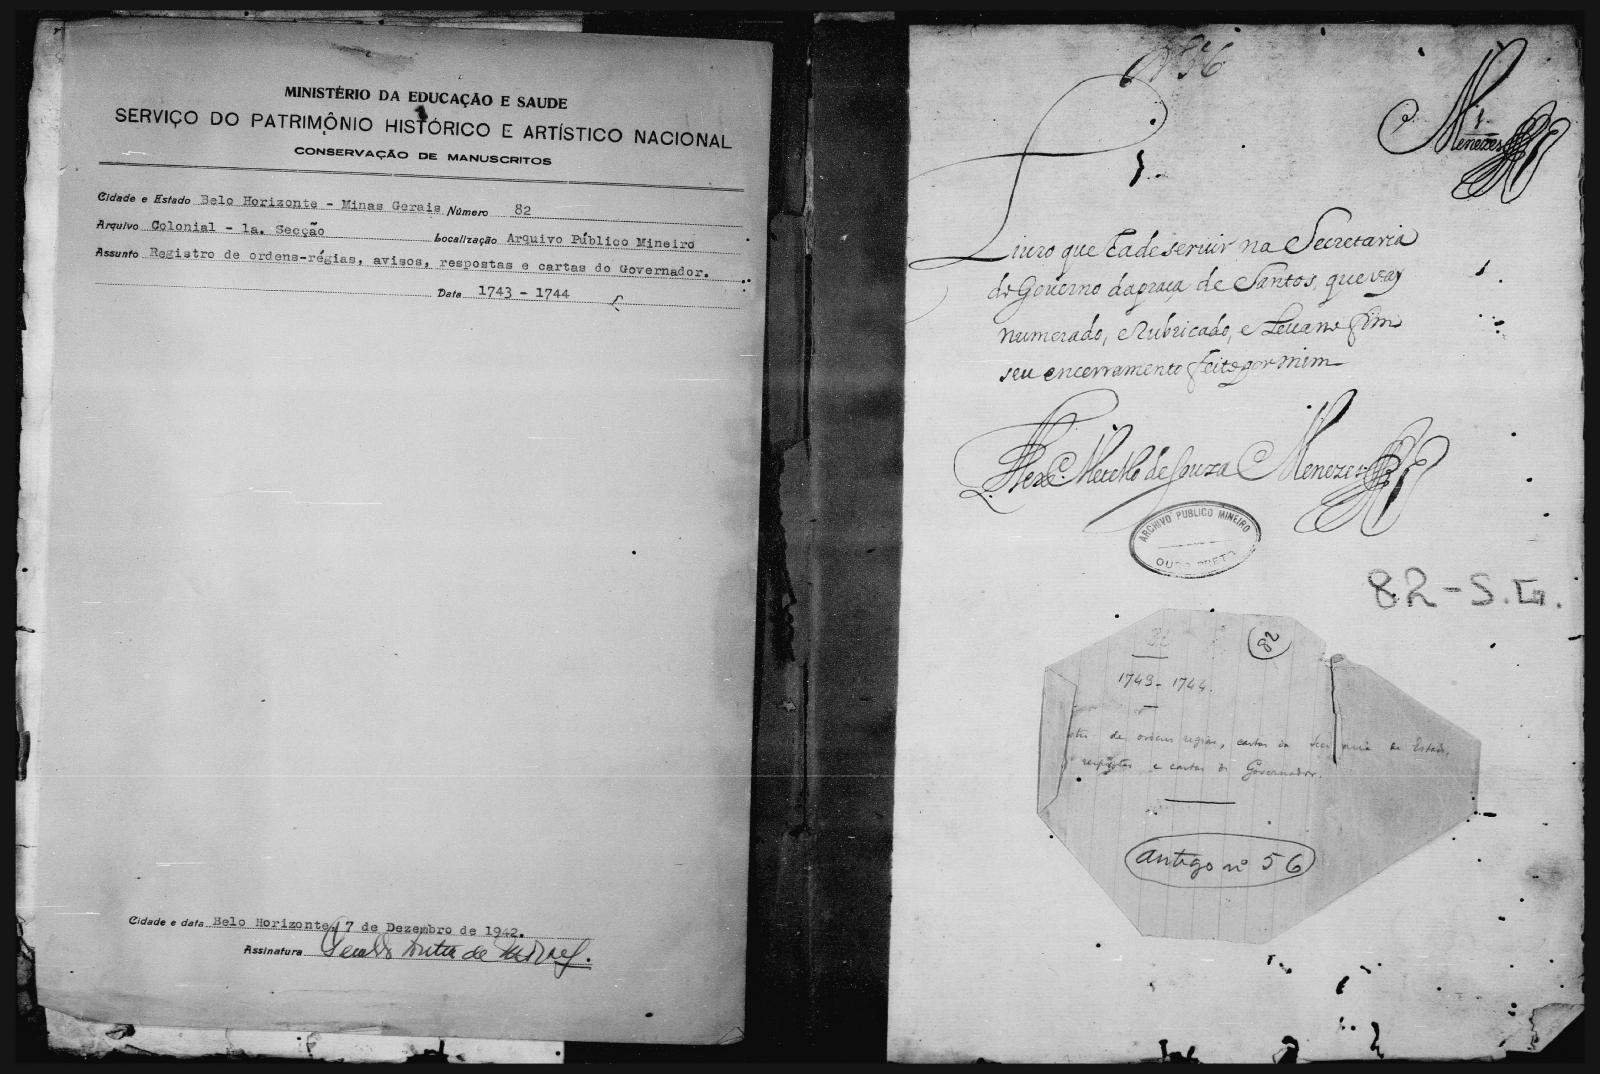 MINISTÉRIO DA EDUCAÇÃO E SAUDE
SERVIÇO DO PATRIMÔNIO HISTÓRICO E ARTÍSTICO NACIONAL
CONSERVAÇÃO DE MANUSCRITOS
Cidade e Estado Belo Horizonte - Minas Gerais Número 82
Arquivo Colonial - 1a. Secção Localização Arquivo Público Mineiro
Assunto Registro de ordens-régias, avisos, respostas e cartas do Governador.
Data 1743 - 1744
Cidade e data Belo Horizonte, 17 de Dezembro de 1942.
Assinatura
Nº 56
1
Menezes
Liuro que hade seruir na Secretaria
do Gouerno da praça de Santos, que vay
numerado, e Rubricado, e Leua no fim
seu encerramento feito por mim
de Souza Menezes
ARCHIVO PUBLICO MINEIRO
OURO PRETO
82 - S.G.
82
82
1743 - 1744.
de ordens regias, cartas da Secretaria de Estado,
respostas e cartas do Governador.
antigo nº 56